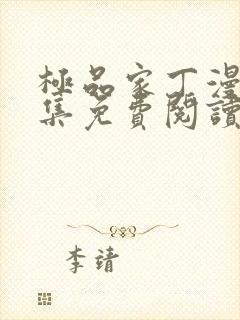 極品家丁漫
集免費閱讀
李靖